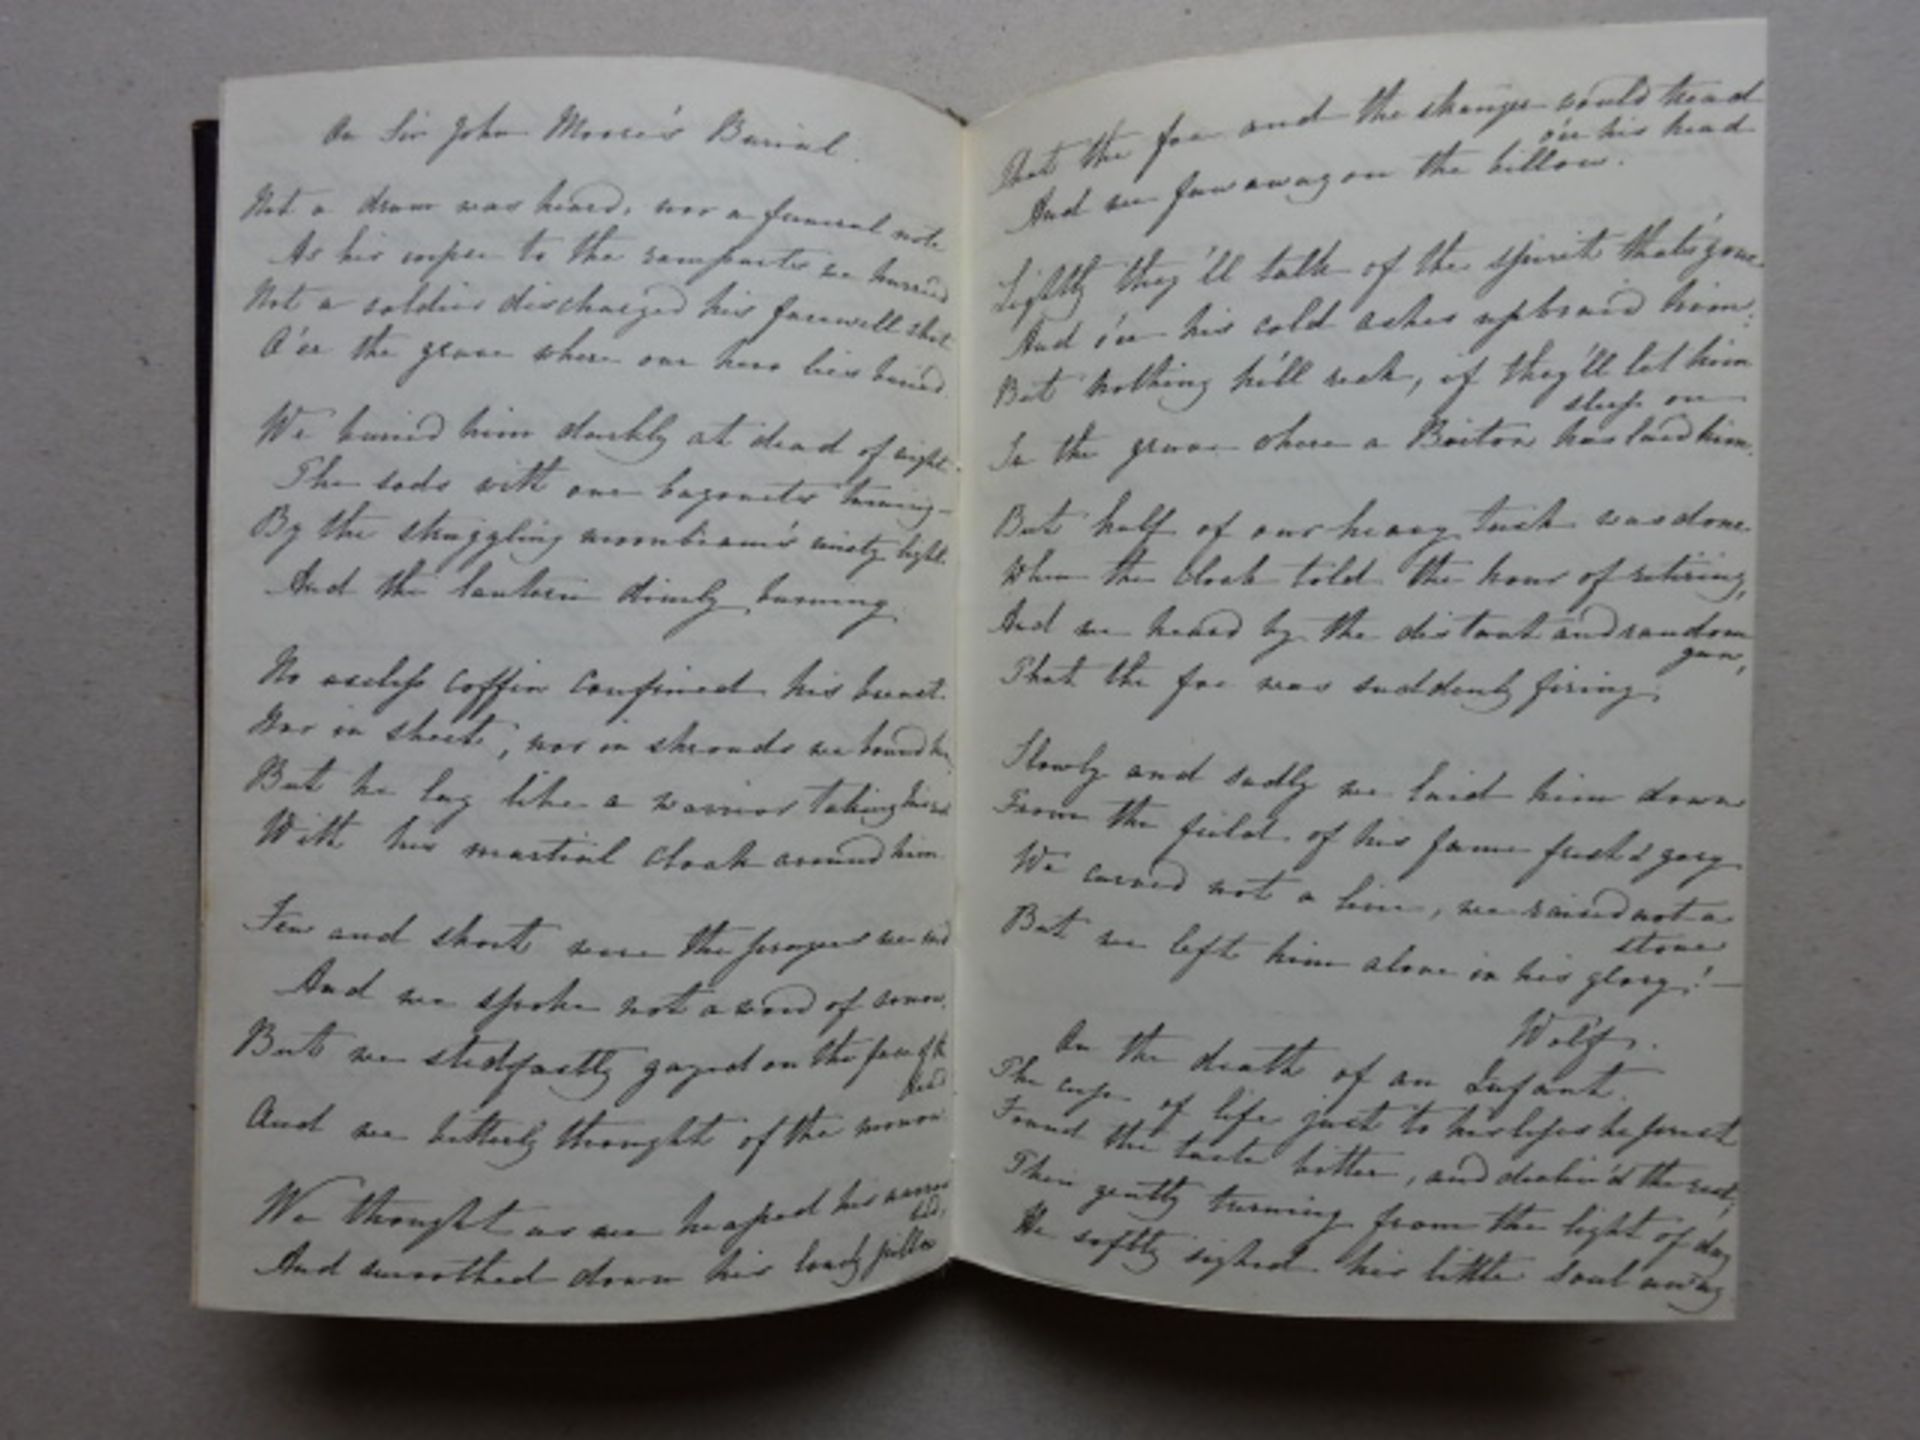 On Sir John Moore's Burial.
Not a drum was heard, nor a funeral note
As his corpse to the ramparts we hurried
Not a soldier discharged his farewell shot
O'er the grave where our hero lies buried.
We buried him darkly at dead of night
The sods with our bayonets turning—
By the struggling moonbeam's misty light
And the lantern dimly burning.
No useless coffin confined his breast
Nor in sheet, nor in shrouds we bound him
But he lay like a warrior taking his rest
With his martial cloak around him.
Few and short were the prayers we said
And we spoke not a word of sorrow.
But we stedfastly gazed on the face of the
dead
And we bitterly thought of the morrow
We thought as we heaped his narrow
bed,
And smoothed down his lonely pillow
That the foe and the stranger would tread
o'er his head
And we far away on the billow.
Lightly they'll talk of the spirit that's gone
And o'er his cold ashes upbraid him:
But nothing he'll reck, if they'll let him
sleep on
In the grave where a Briton has laid him.
But half of our heavy task was done
When the clock told the hour of retiring,
And we heard by the distant and random
gun,
That the foe was suddenly firing.
Slowly and sadly we laid him down
From the field of his fame fresh & gory
We carved not a line, we raised not a
stone
But we left him alone in his glory!—
Wolf.
On the death of an Infant.
The cup of life just to his lips he prest
Found the taste bitter, and declin'd the rest;
Then gently turning from the light of day
He softly sighed his little soul away